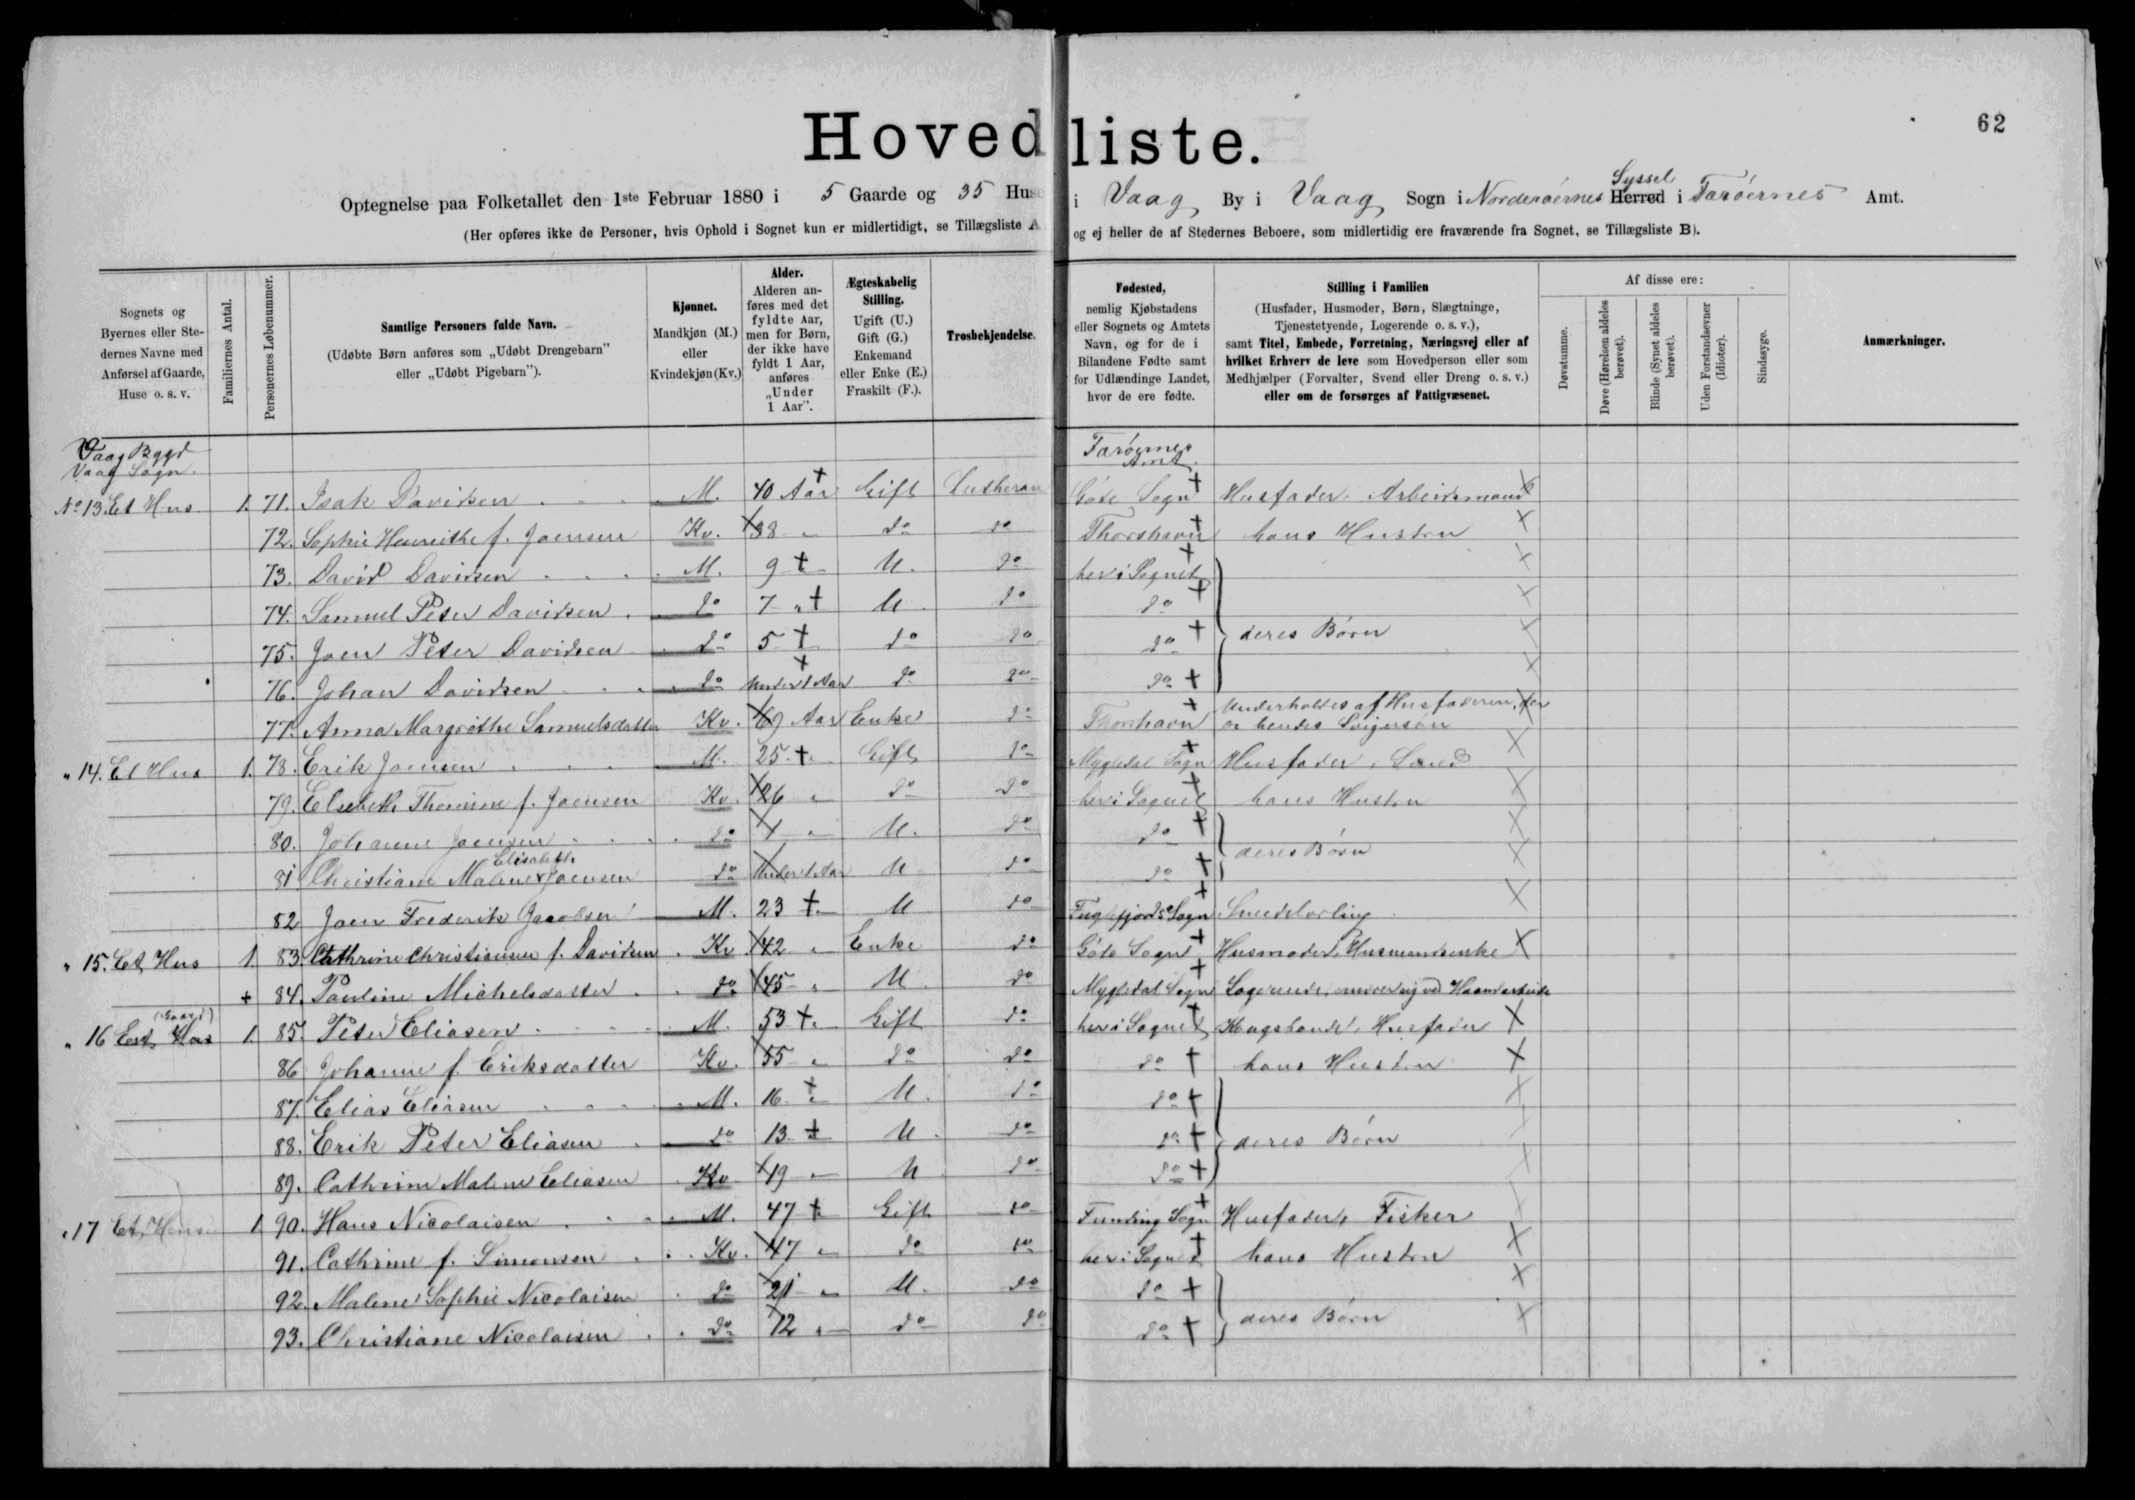 Hovedliste.
62
Optegnelse paa Folketallet den 1ste Februar 1880 i 5 Gaarde og 35 Huse i Vaag By i Vaag Sogn i Norderøernes Herred Syssel i Færøernes Amt.
(Her opføres ikke de Personer, hvis Ophold i Sognet kun er midlertidigt, se Tillægsliste A og ej heller de af Stedernes Beboere, som midlertidig ere fraværende fra Sognet, se Tillægsliste B).
Sognets og Byernes eller Stedernes Navne med Anførsel af Gaarde, Huse o. s. v.
Familiernes Antal.
Personernes Løbenummer.
Samtlige Personers fulde Navn. (Udøbte Børn anføres som „Udøbt Drengebarn" eller „Udøbt Pigebarn").
Kjønnet. Mandkjøn (M.) eller Kvindekjøn (Kv.)
Alder. Alderen anføres med det fyldte Aar, men for Børn, der ikke have fyldt 1 Aar, anføres „Under 1 Aar".
Ægteskabelig Stilling. Ugift (U.) Gift (G.) Enkemand eller Enke (E.) Fraskilt (F.).
Trosbekjendelse.
Fødested, nemlig Kjøbstadens eller Sognets og Amtets Navn, og for de i Bilandene Fødte samt for Udlændinge Landet, hvor de ere fødte.
Stilling i Familien (Husfader, Husmoder, Børn, Slægtninge, Tjenestetyende, Logerende o. s. v.), samt Titel, Embede, Forretning, Næringsvej eller af hvilket Erhverv de leve som Hovedperson eller som Medhjælper (Forvalter, Svend eller Dreng o. s. v.) eller om de forsørges af Fattigvæsenet.
Af disse ere:
Døvstumme.
Døve (Hørelsen aldeles berøvet).
Blinde (Synet aldeles berøvet).
Uden Forstandsevner (Idioter).
Sindssyge.
Anmærkninger.
Vaag Bygd
Vaag Sogn.
Færøernes Amt
No 13. Et Hus 1. 71. Isak Davidsen M. 40 Aar Gift Lutheran Göte Sogn Husfader, Arbeidsmand
72. Sophie Henriethe f. Joensen Kv. 38 do do Thorshavn hans Hustru
73. David Davidsen M. 9 U. do her i Sognet
74. Samuel Peter Davidsen do 7 U. do do
75. Joen Peter Davidsen do 5 do do do deres Børn
76. Johan Davidsen do Under 1 Aar do do do
77. Anna Margrethe Samuelsdatter Kv. 69 Aar Enke do Thorshavn Underholdes af Husfaderen, der er hendes Svigersøn
" 14. Et Hus 1. 78. Erik Joensen M. 25 Gift do Mygledal Sogn Husfader,
79. Elsebeth Thomine f. Joensen Kv. 26 do do her i Sognet hans Hustru
80. Johanne Joensen do 1 U. do do deres Børn
81 Christiane Malene Elisabeth Joensen do Under 1 Aar U do do
82 Joen Frederik Jacobsen M. 23 U do Fuglefjords Sogn Smedelærling
" 15. Et Hus 1. 83. Cathrine Christiansen f. Davidsen Kv. 42 Enke do Göte Sogn Husmoder, Husmandsenke
+ 84. Pauline Michelsdatter do 45 U. do Mygledal Sogn Logerende, ernærer sig ved Haandarbeide
" 16 Een Hus (Gaard) 1. 85. Peter Eliasen M. 53 Gift do her i Sognet Kongsbonde, Husfader
86 Johanne f. Eriksdatter Kv. 55 do do do hans Hustru
87. Elias Eliasen M. 16 U. do do
88. Erik Peter Eliasen do 13 U. do do deres Børn
89. Cathrine Malene Eliasen Kv. 19 U do do
" 17 Et Hus 1 90. Hans Nicolaisen M. 47 Gift do Funding Sogn Husfader, Fisker
91. Cathrine f. Simonsen Kv. 47 do do her i Sognet hans Hustru
92. Malene Sophie Nicolaisen do 21 U. do do deres Børn
93. Christiane Nicolaisen do 12 do do do